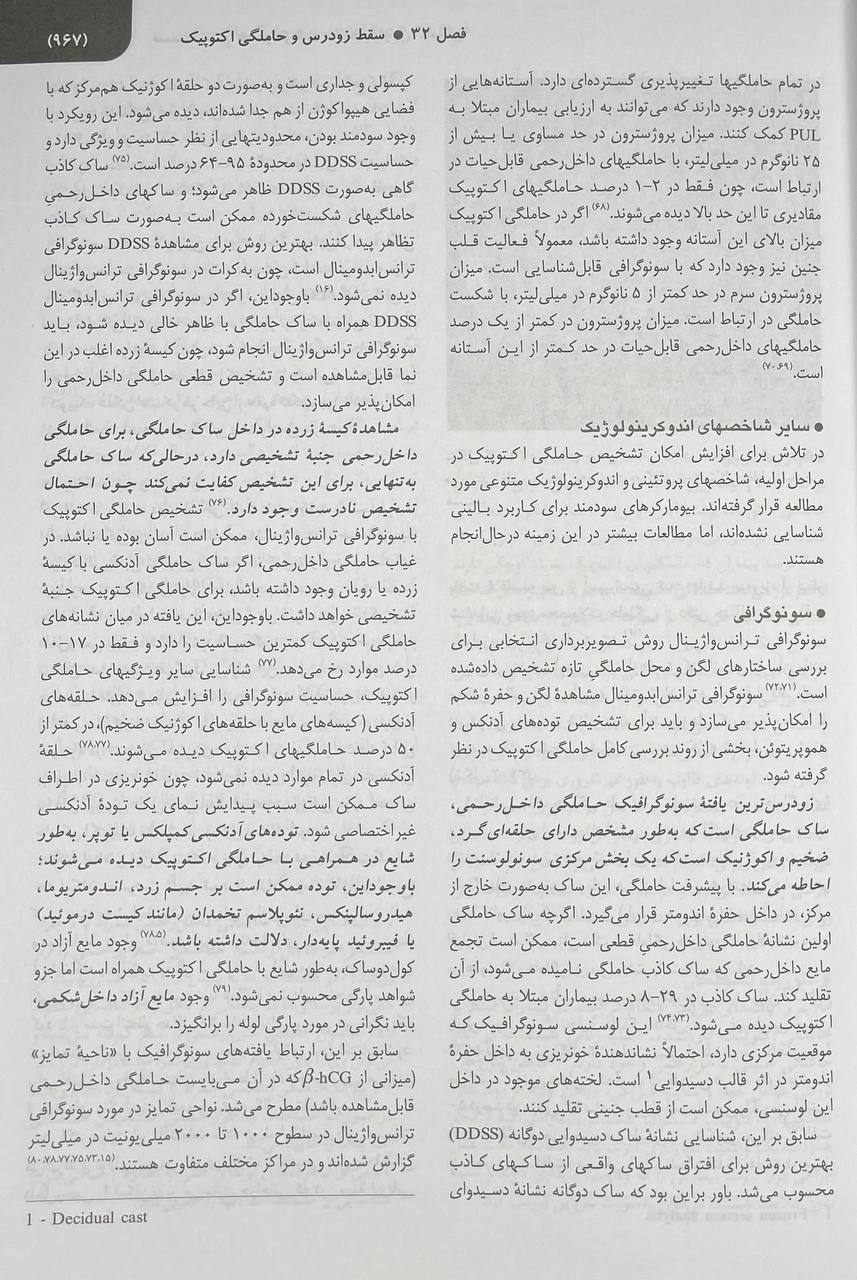 فصل ۳۲ ● سقط زودرس و حاملگی اکتوپیک
(۹۶۷)
در تمام حاملگیها تغییرپذیری گسترده‌ای دارد. آستانه‌هایی از
پروژسترون وجود دارند که می‌توانند به ارزیابی بیماران مبتلا به
PUL کمک کنند. میزان پروژسترون در حد مساوی یا بیش از
۲۵ نانوگرم در میلی‌لیتر، با حاملگیهای داخل‌رحمی قابل‌حیات در
ارتباط است، چون فقط در ۲-۱ درصد حاملگیهای اکتوپیک
مقادیری تا این حد بالا دیده می‌شوند.(۶۸) اگر در حاملگی اکتوپیک
میزان بالای این آستانه وجود داشته باشد، معمولاً فعالیت قلب
جنین نیز وجود دارد که با سونوگرافی قابل‌شناسایی است. میزان
پروژسترون سرم در حد کمتر از ۵ نانوگرم در میلی‌لیتر، با شکست
حاملگی در ارتباط است. میزان پروژسترون در کمتر از یک درصد
حاملگیهای داخل‌رحمی قابل‌حیات در حد کمتر از این آستانه
است.(۷۰،۶۹)
● سایر شاخصهای اندوکرینولوژیک
در تلاش برای افزایش امکان تشخیص حاملگی اکتوپیک در
مراحل اولیه، شاخصهای پروتئینی و اندوکرینولوژیک متنوعی مورد
مطالعه قرار گرفته‌اند. بیومارکرهای سودمند برای کاربرد بالینی
شناسایی نشده‌اند، اما مطالعات بیشتر در این زمینه درحال‌انجام
هستند.
● سونوگرافی
سونوگرافی ترانس‌واژینال روش تصویربرداری انتخابی برای
بررسی ساختارهای لگن و محل حاملگیِ تازه تشخیص داده‌شده
است.(۷۲،۷۱) سونوگرافی ترانس‌ابدومینال مشاهدهٔ لگن و حفرهٔ شکم
را امکان‌پذیر می‌سازد و باید برای تشخیص توده‌های آدنکس و
هموپریتوئن، بخشی از روند بررسی کامل حاملگی اکتوپیک در نظر
گرفته شود.
زودرس‌ترین یافتهٔ سونوگرافیک حاملگی داخل‌رحمی،
ساک حاملگی است که به‌طور مشخص دارای حلقه‌ای گرد،
ضخیم و اکوژنیک است که یک بخش مرکزی سونولوسنت را
احاطه می‌کند. با پیشرفت حاملگی، این ساک به‌صورت خارج از
مرکز، در داخل حفرهٔ اندومتر قرار می‌گیرد. اگرچه ساک حاملگی
اولین نشانهٔ حاملگی داخل‌رحمیِ قطعی است، ممکن است تجمع
مایع داخل‌رحمی که ساک کاذب حاملگی نامیده می‌شود، از آن
تقلید کند. ساک کاذب در ۲۹-۸ درصد بیماران مبتلا به حاملگی
اکتوپیک دیده می‌شود.(۷۴،۷۳) این لوسنسی سونوگرافیک که
موقعیت مرکزی دارد، احتمالاً نشاندهندهٔ خونریزی به داخل حفرهٔ
اندومتر در اثر قالب دسیدوایی۱ است. لخته‌های موجود در داخل
این لوسنسی، ممکن است از قطب جنینی تقلید کنند.
سابق بر این، شناسایی نشانهٔ ساک دسیدوایی دوگانه (DDSS)
بهترین روش برای افتراق ساکهای واقعی از ساکهای کاذب
محسوب می‌شد. باور براین بود که ساک دوگانه نشانهٔ دسیدوای
کپسولی و جداری است و به‌صورت دو حلقهٔ اکوژنیک هم‌مرکز که با
فضایی هیپواکوژن از هم جدا شده‌اند، دیده می‌شود. این رویکرد با
وجود سودمند بودن، محدودیتهایی از نظر حساسیت و ویژگی دارد و
حساسیت DDSS در محدودهٔ ۹۵-۶۴ درصد است.(۷۵) ساک کاذب
گاهی به‌صورت DDSS ظاهر می‌شود؛ و ساکهای داخل‌رحمیِ
حاملگیهای شکست‌خورده ممکن است به‌صورت ساک کاذب
تظاهر پیدا کنند. بهترین روش برای مشاهدهٔ DDSS سونوگرافی
ترانس‌ابدومینال است، چون به‌کرات در سونوگرافی ترانس‌واژینال
دیده نمی‌شود.(۱۶) باوجوداین، اگر در سونوگرافی ترانس‌ابدومینال
DDSS همراه با ساک حاملگی با ظاهر خالی دیده شود، باید
سونوگرافی ترانس‌واژینال انجام شود، چون کیسهٔ زرده اغلب در این
نما قابل‌مشاهده است و تشخیص قطعی حاملگی داخل‌رحمی را
امکان‌پذیر می‌سازد.
مشاهدهٔ کیسهٔ زرده در داخل ساک حاملگی، برای حاملگی
داخل‌رحمی جنبهٔ تشخیصی دارد، درحالی‌که ساک حاملگی
به‌تنهایی، برای این تشخیص کفایت نمی‌کند چون احتمال
تشخیص نادرست وجود دارد.(۷۶) تشخیص حاملگی اکتوپیک
با سونوگرافی ترانس‌واژینال، ممکن است آسان بوده یا نباشد. در
غیاب حاملگی داخل‌رحمی، اگر ساک حاملگی آدنکسی با کیسهٔ
زرده یا رویان وجود داشته باشد، برای حاملگی اکتوپیک جنبهٔ
تشخیصی خواهد داشت. باوجوداین، این یافته در میان نشانه‌های
حاملگی اکتوپیک کمترین حساسیت را دارد و فقط در ۱۷-۱۰
درصد موارد رخ می‌دهد.(۷۷) شناسایی سایر ویژگیهای حاملگی
اکتوپیک، حساسیت سونوگرافی را افزایش می‌دهد. حلقه‌های
آدنکسی (کیسه‌های مایع با حلقه‌های اکوژنیک ضخیم)، در کمتر از
۵۰ درصد حاملگیهای اکتوپیک دیده می‌شوند.(۷۸،۷۷) حلقهٔ
آدنکسی در تمام موارد دیده نمی‌شود، چون خونریزی در اطراف
ساک ممکن است سبب پیدایش نمای یک تودهٔ آدنکسی
غیراختصاصی شود. توده‌های آدنکسی کمپلکس یا توپر، به‌طور
شایع در همراهی با حاملگی اکتوپیک دیده می‌شوند؛
باوجوداین، توده ممکن است بر جسم زرد، اندومتریوما،
هیدروسالپنکس، نئوپلاسم تخمدان (مانند کیست درموئید)
یا فیبروئید پایه‌دار، دلالت داشته باشد.(۷۸،۵) وجود مایع آزاد در
کول‌دوساک، به‌طور شایع با حاملگی اکتوپیک همراه است اما جزو
شواهد پارگی محسوب نمی‌شود.(۷۹) وجود مایع آزاد داخل‌شکمی،
باید نگرانی در مورد پارگی لوله را برانگیزد.
سابق بر این، ارتباط یافته‌های سونوگرافیک با «ناحیهٔ تمایز»
(میزانی از β-hCG که در آن می‌بایست حاملگی داخل‌رحمی
قابل‌مشاهده باشد) مطرح می‌شد. نواحی تمایز در مورد سونوگرافی
ترانس‌واژینال در سطوح ۱۰۰۰ تا ۲۰۰۰ میلی‌یونیت در میلی‌لیتر
گزارش شده‌اند و در مراکز مختلف متفاوت هستند.(۸۰،۷۸،۷۷،۷۵،۷۳،۱۵)
1 - Decidual cast